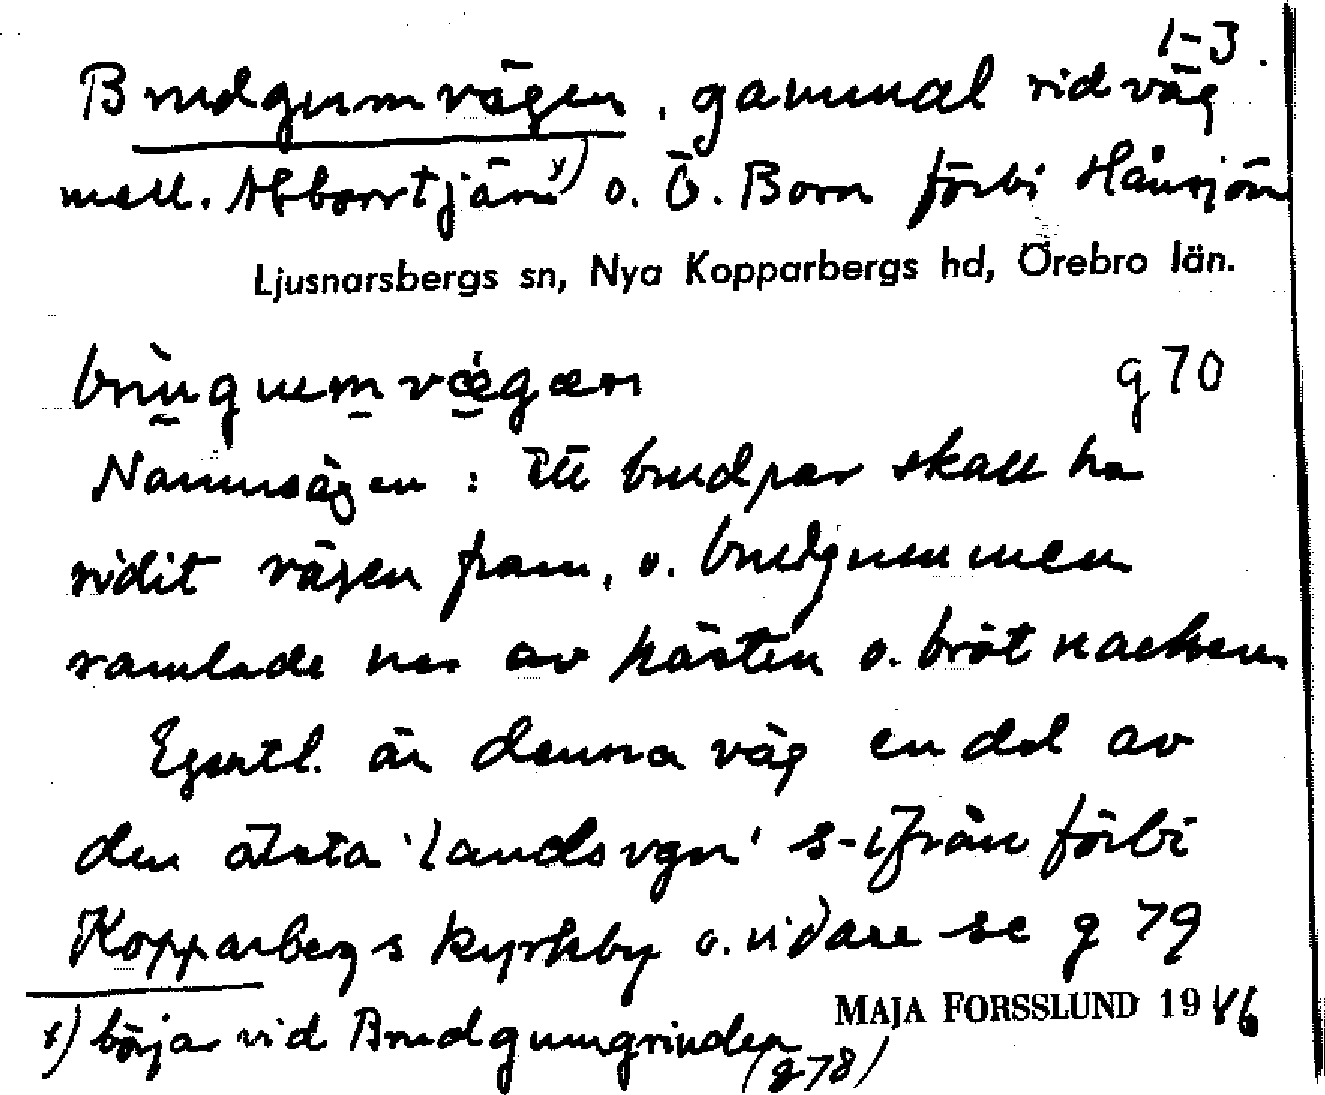 1-3.
Brudgumvägen, gammal ridväg
mell. Abborrtjärn x) o. Ö. Born förbi Hånsjön
Ljusnarsbergs sn, Nya Kopparbergs hd, Örebro län.
g 70
Namnsägen: Ett brudpar skall ha
ridit vägen fram, o. brudgummen
ramlade ner av hästen o. bröt nacken.
Egentl. är denna väg en del av
den älsta 'landsvgn' s-ifrån förbi
Kopparbergs kyrkby o. vidare se g 79
x) börjar vid Brudgumgrinden (g 78)
MAJA FORSSLUND 1946